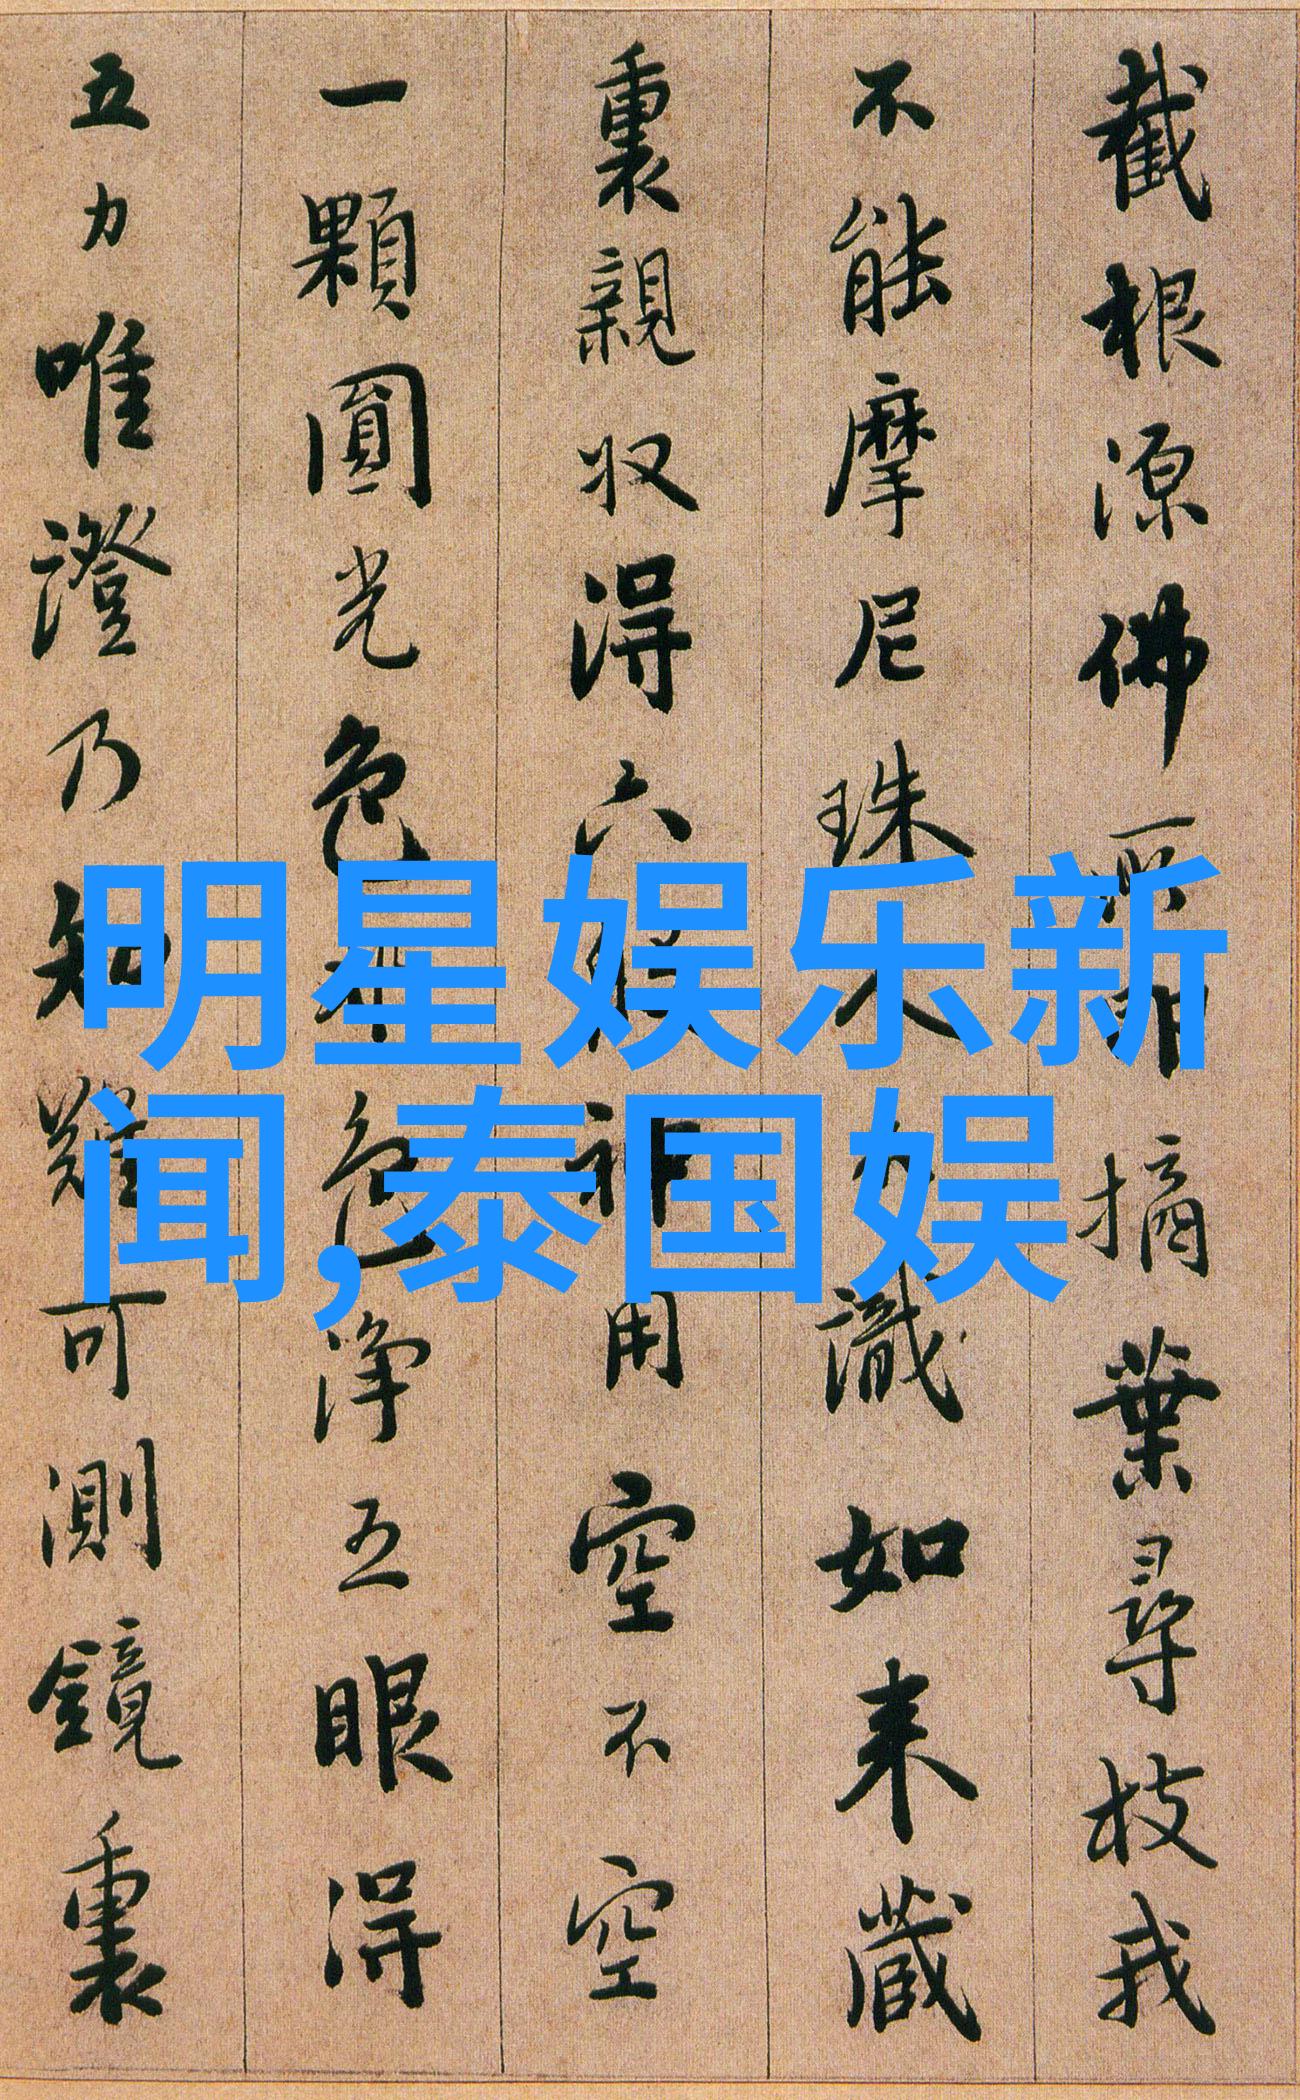 截根源佛所印摘葉尋枝我
不能摩尼珠人不識如來藏
裏親收得六般神用空不空
一顆圓光色非色淨五眼得
五力唯證乃知難可測鏡裏
明星娱乐新
闻,泰国娱